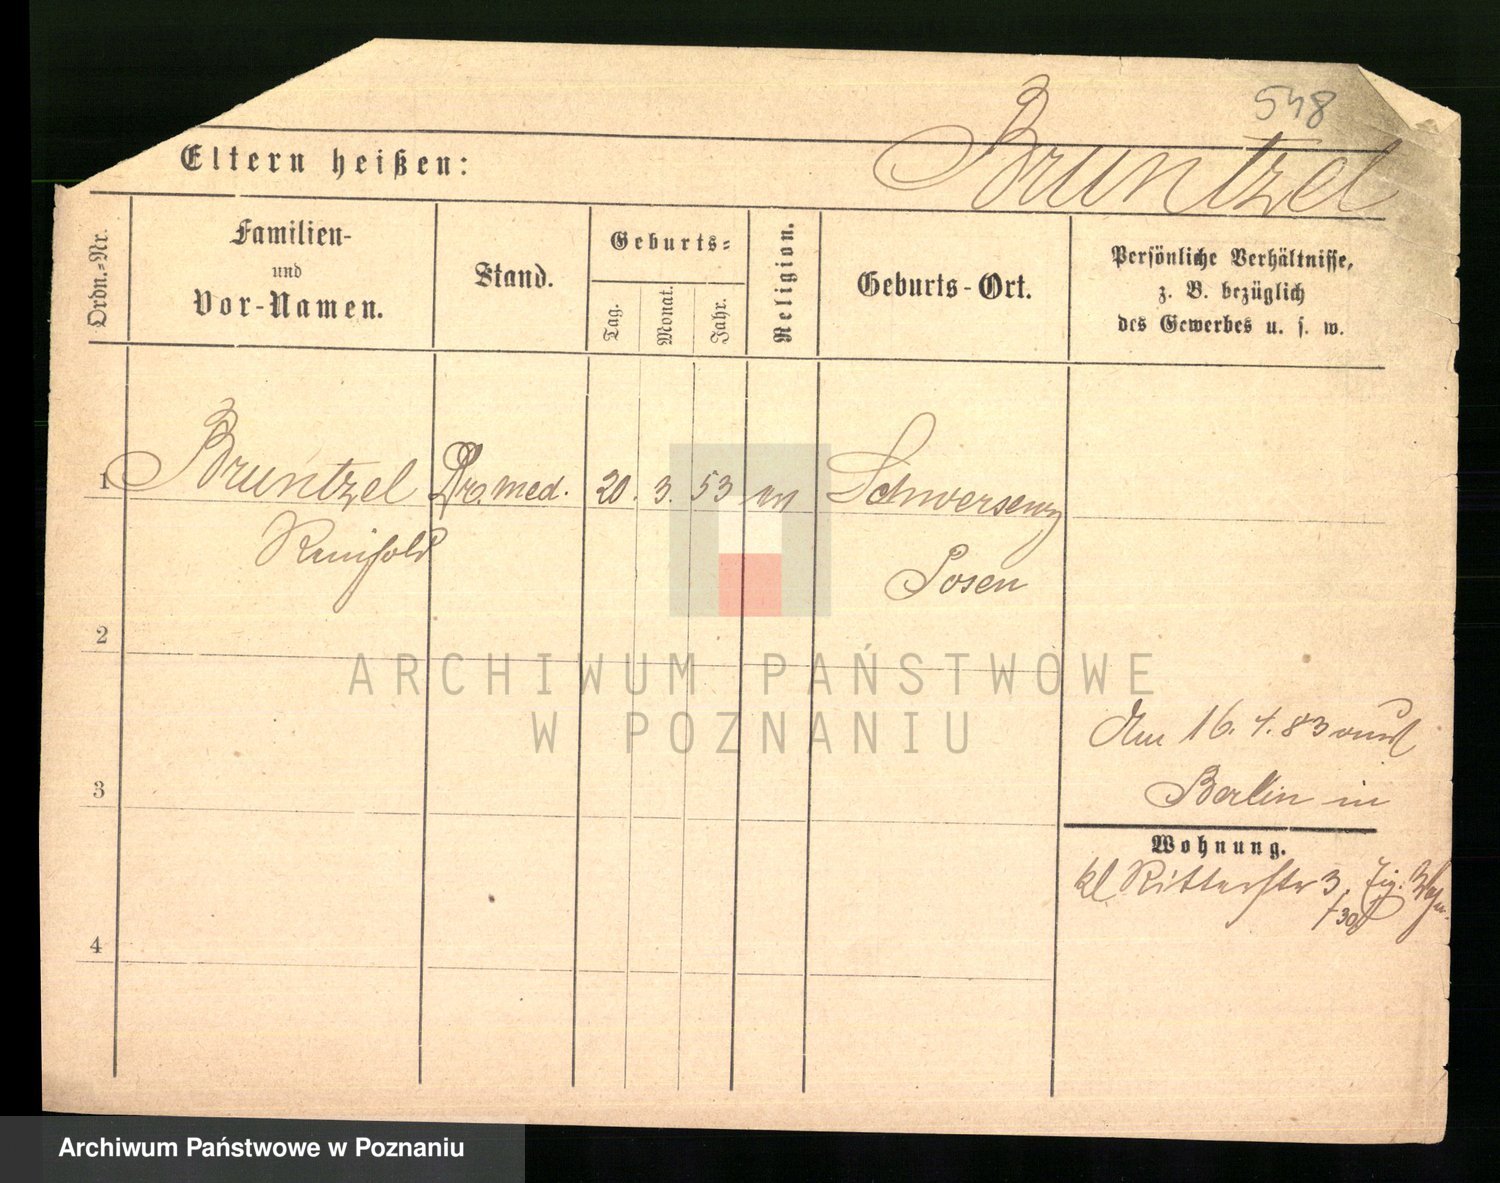 548
Bruntzel
Eltern heißen:
Ordn.-Nr.
Familien-
und
Vor-Namen.
Stand.
Geburts-
Tag.
Monat.
Jahr.
Religion.
Geburts-Ort.
Persönliche Verhältnisse,
z. B. bezüglich
des Gewerbes u. s. w.
1 Bruntzel Dr. med. 20. 3. 53 ev Schwersenz
Reinhold
Posen
2
3
4
16. 4. 83
Berlin in
Wohnung.
kl Ritterstr 3.
ARCHIWUM PAŃSTWOWE
W POZNANIU
Archiwum Państwowe w Poznaniu